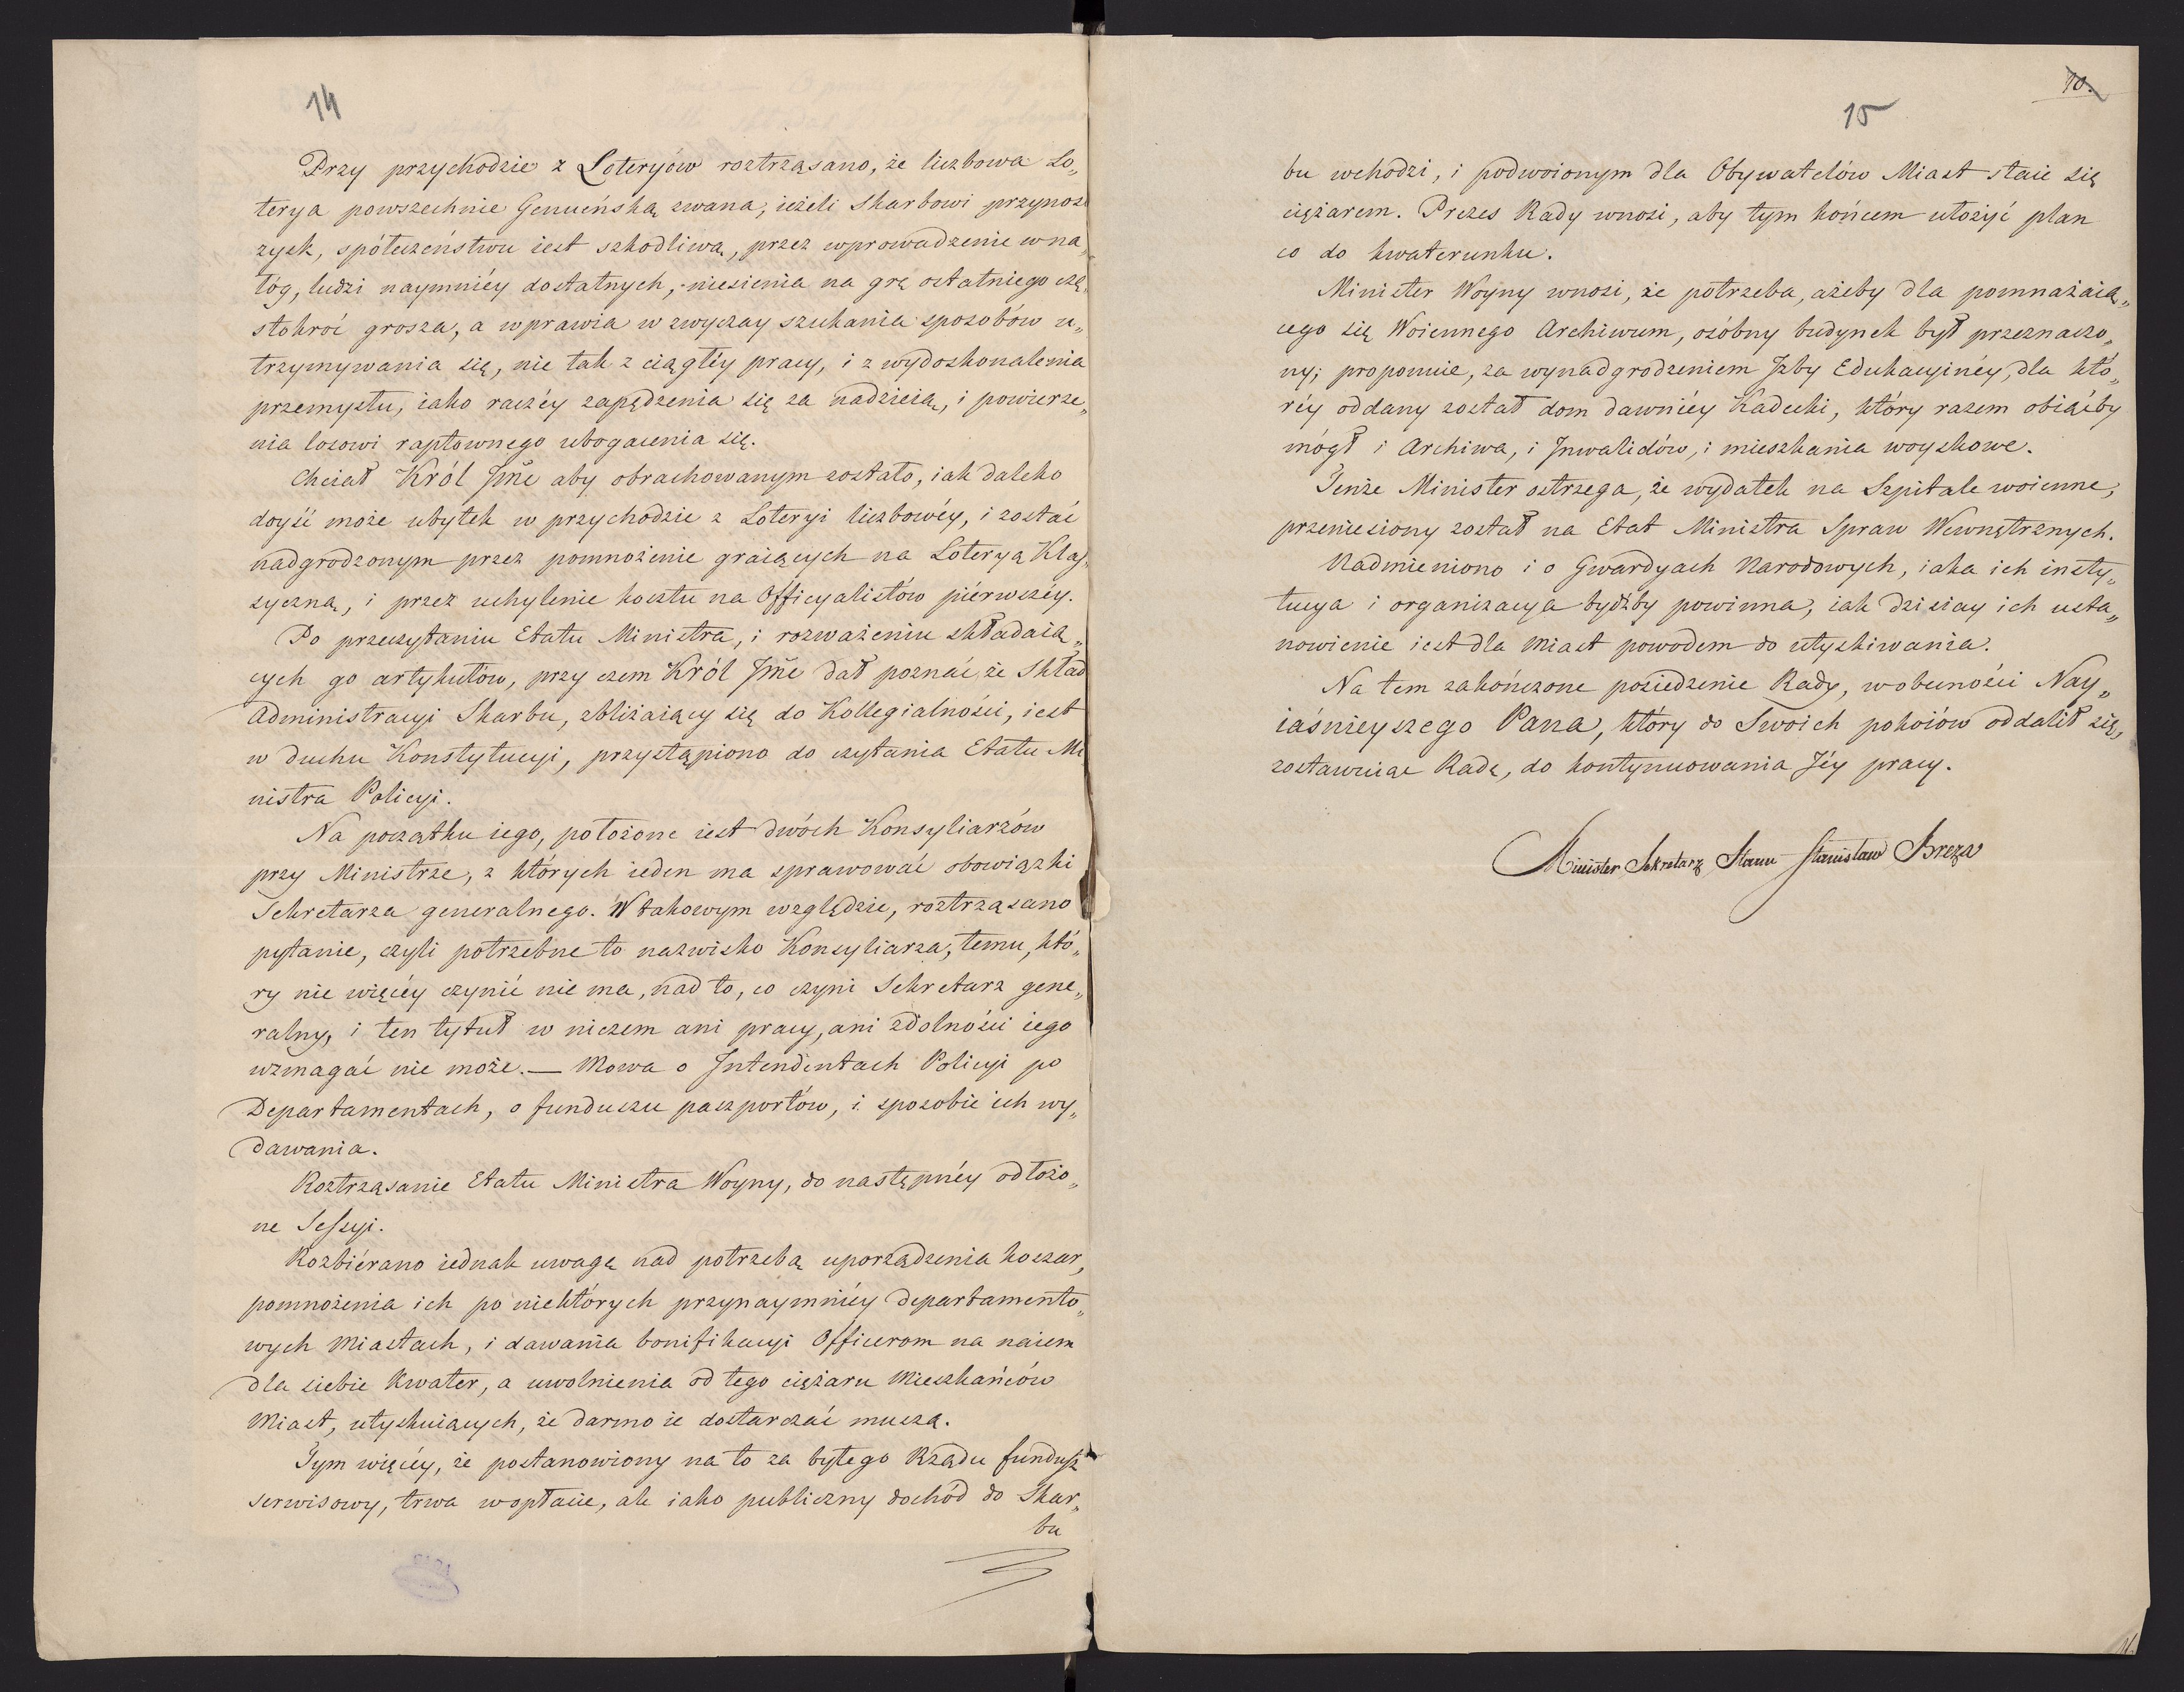 14
Przy przychodzie z Loteryów roztrząsano, że liczbowa Lo„
terya powszechnie Genueńską zwana, ieżeli Skarbowi przynosi
zysk, społeczeństwu iest szkodliwą, przez wprowadzenie w na„
łóg, ludzi naymniéy dostatnych, niesienia na grę ostatniego czę„
stokroć grosza, a wprawia w zwyczay szukania sposobów u„
trzymywania się, nie tak z ciągłéy pracy, i z wydoskonalenia
przemysłu, iako raczéy zapędzenia się za nadzieią, i powierze„
nia losowi raptownego ubogacenia się.
Chciał Król Jmć aby obrachowanym zostało, iak daleko
doyść może ubytek w przychodzie z Loteryi liczbowéy, i zostać
nadgrodzonym przez pomnożenie graiących na Loteryą Klas„
syczną, i przez uchylenie kosztu na Officyalistów piérwszéy.
Po przeczytaniu Etatu Ministra, i rozważeniu składaią„
cych go artykułów, przy czem Król Jmć dał poznać, że Skład
Administracyi Skarbu, zbliżaiący się do Kollegialności, iest
w duchu Konstytucyi, przystąpiono do czytania Etatu Mi
nistra Policyi.
Na początku iego, położone iest dwóch Konsyliarzów
przy Ministrze, z których ieden ma sprawować obowiązki
Sekretarza generalnego. W takowym względzie, roztrząsano
pytanie, czyli potrzebne to nazwisko Konsyliarza, temu, któ„
ry nic więcéy czynić nie ma, nad to, co czyni Sekretarz gene„
ralny, i ten tytuł w niczem ani pracy, ani zdolności iego
wzmagać nie może. — Mowa o Intendentach Policyi po
Departamentach, o funduszu paszportów, i sposobie ich wy„
dawania.
Roztrząsanie Etatu Ministra Woyny, do następnéy odłożo„
ne Sessyi.
Rozbiérano iednak uwagę nad potrzebą uporządzenia koszar,
pomnożenia ich po niektórych przynaymniéy departamento„
wych Miastach, i dawania bonifikacyi Officerom na naiem
dla siebie Kwater, a uwolnienia od tego ciężaru Mieszkańców
Miast, utyskuiących, że darmo ie dostarczać muszą.
Tym więcéy, że postanowiony na to za byłego Rządu fundusz
serwisowy, trwa w opłacie, ale iako publiczny dochód do Skar„
bu
10.
15
bu wchodzi, i podwoionym dla Obywatelów Miast staie się
ciężarem. Prezes Rady wnosi, aby tym końcem ułożyć plan
co do kwaterunku.
Minister Woyny wnosi, że potrzeba, ażeby dla pomnażaią„
cego się Woiennego Archiwum, osóbny budynek był przeznaczo„
ny; proponuie, za wynadgrodzeniem Izby Edukacyinéy, dla któ„
réy oddany został dom dawniéy Kadecki, który razem obiąćby
mógł i Archiwa, i Inwalidów, i mieszkania woyskowe.
Tenże Minister ostrzega, że wydatek na Szpitale woienne,
przeniesiony został na Etat Ministra Spraw Wewnętrznych.
Nadmieniono i o Gwardyach Narodowych, iaka ich insty„
tucya i organizacya bydźby powinna, iak dzisiay ich usta„
nowienie iest dla Miast powodem do utyskiwania.
Na tem zakończone posiedzenie Rady, w obecności Nay„
iaśnieyszego Pana, który do Swoich pokoiów oddalił się,
zostawuiąc Radę, do kontynuowania Jéy pracy.
Minister Sekretarz Stanu Stanisław Breza